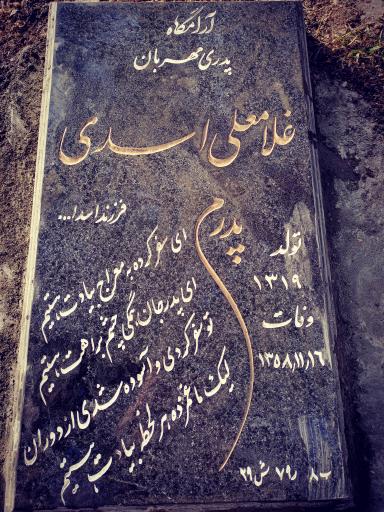 آرامگاه
پدری مهربان
غلامعلی اسدی
فرزند اسدا...
پدرم
تولد
۱۳۱۹
وفات
۱۳۵۸,۱۱,۱۶
ای سفر کرده به معراج بیادت هستیم
ای پدر جان همگی چشم براهت هستیم
تو سفر کردی و آسوده شدی از دوران
لیک ما غمزده هر لحظه بیادت هستیم
ب۸ ر۷۹ ش۲۹